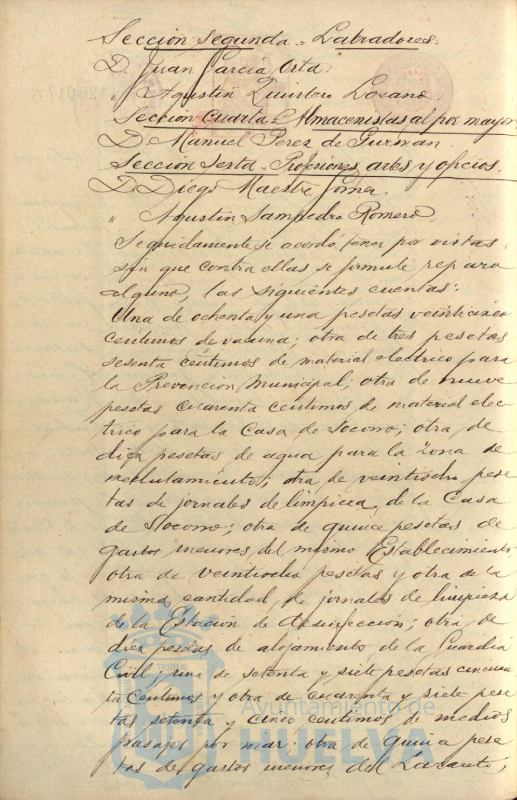 Sección Segunda = Labradores.
D. Juan García Orta
" Agustín Quintero Lozano.
Sección Cuarta = Almacenistas al por mayor
D. Manuel Pérez de Guzmán.
Sección Sexta = Profesiones, artes y oficios.
D. Diego Maestre
" Agustín Sampedro Romero.
Seguidamente se acordó tener por vistas
sin que contra ellas se formule reparo
alguno, las siguientes cuentas:
Una de ochenta y una pesetas veinticinco
centimos de vacuna; otra de tres pesetas
sesenta centimos de material electrico para
la Prevencion Municipal; otra de nueve
pesetas cuarenta centimos de material elec-
trico para la Casa de Socorro; otra de
diez pesetas de agua para la Zona de
reclutamiento; otra de veintiocho pese
tas de jornales de limpieza de la Casa
de Socorro; otra de quince pesetas de
gastos menores del mismo Establecimiento
otra de veintiocho pesetas y otra de la
misma cantidad de jornales de limpieza
de la Estacion de Desinfección; otra de
diez pesetas de alojamiento de la Guardia
Civil; una de setenta y siete pesetas cincuen
ta centimos y otra de cuarenta y siete pese
tas setenta y cinco centimos de medios
pasajes por mar; otra de quince pese
tas de gastos menores del Lazareto;
Ayuntamiento de
HUELVA